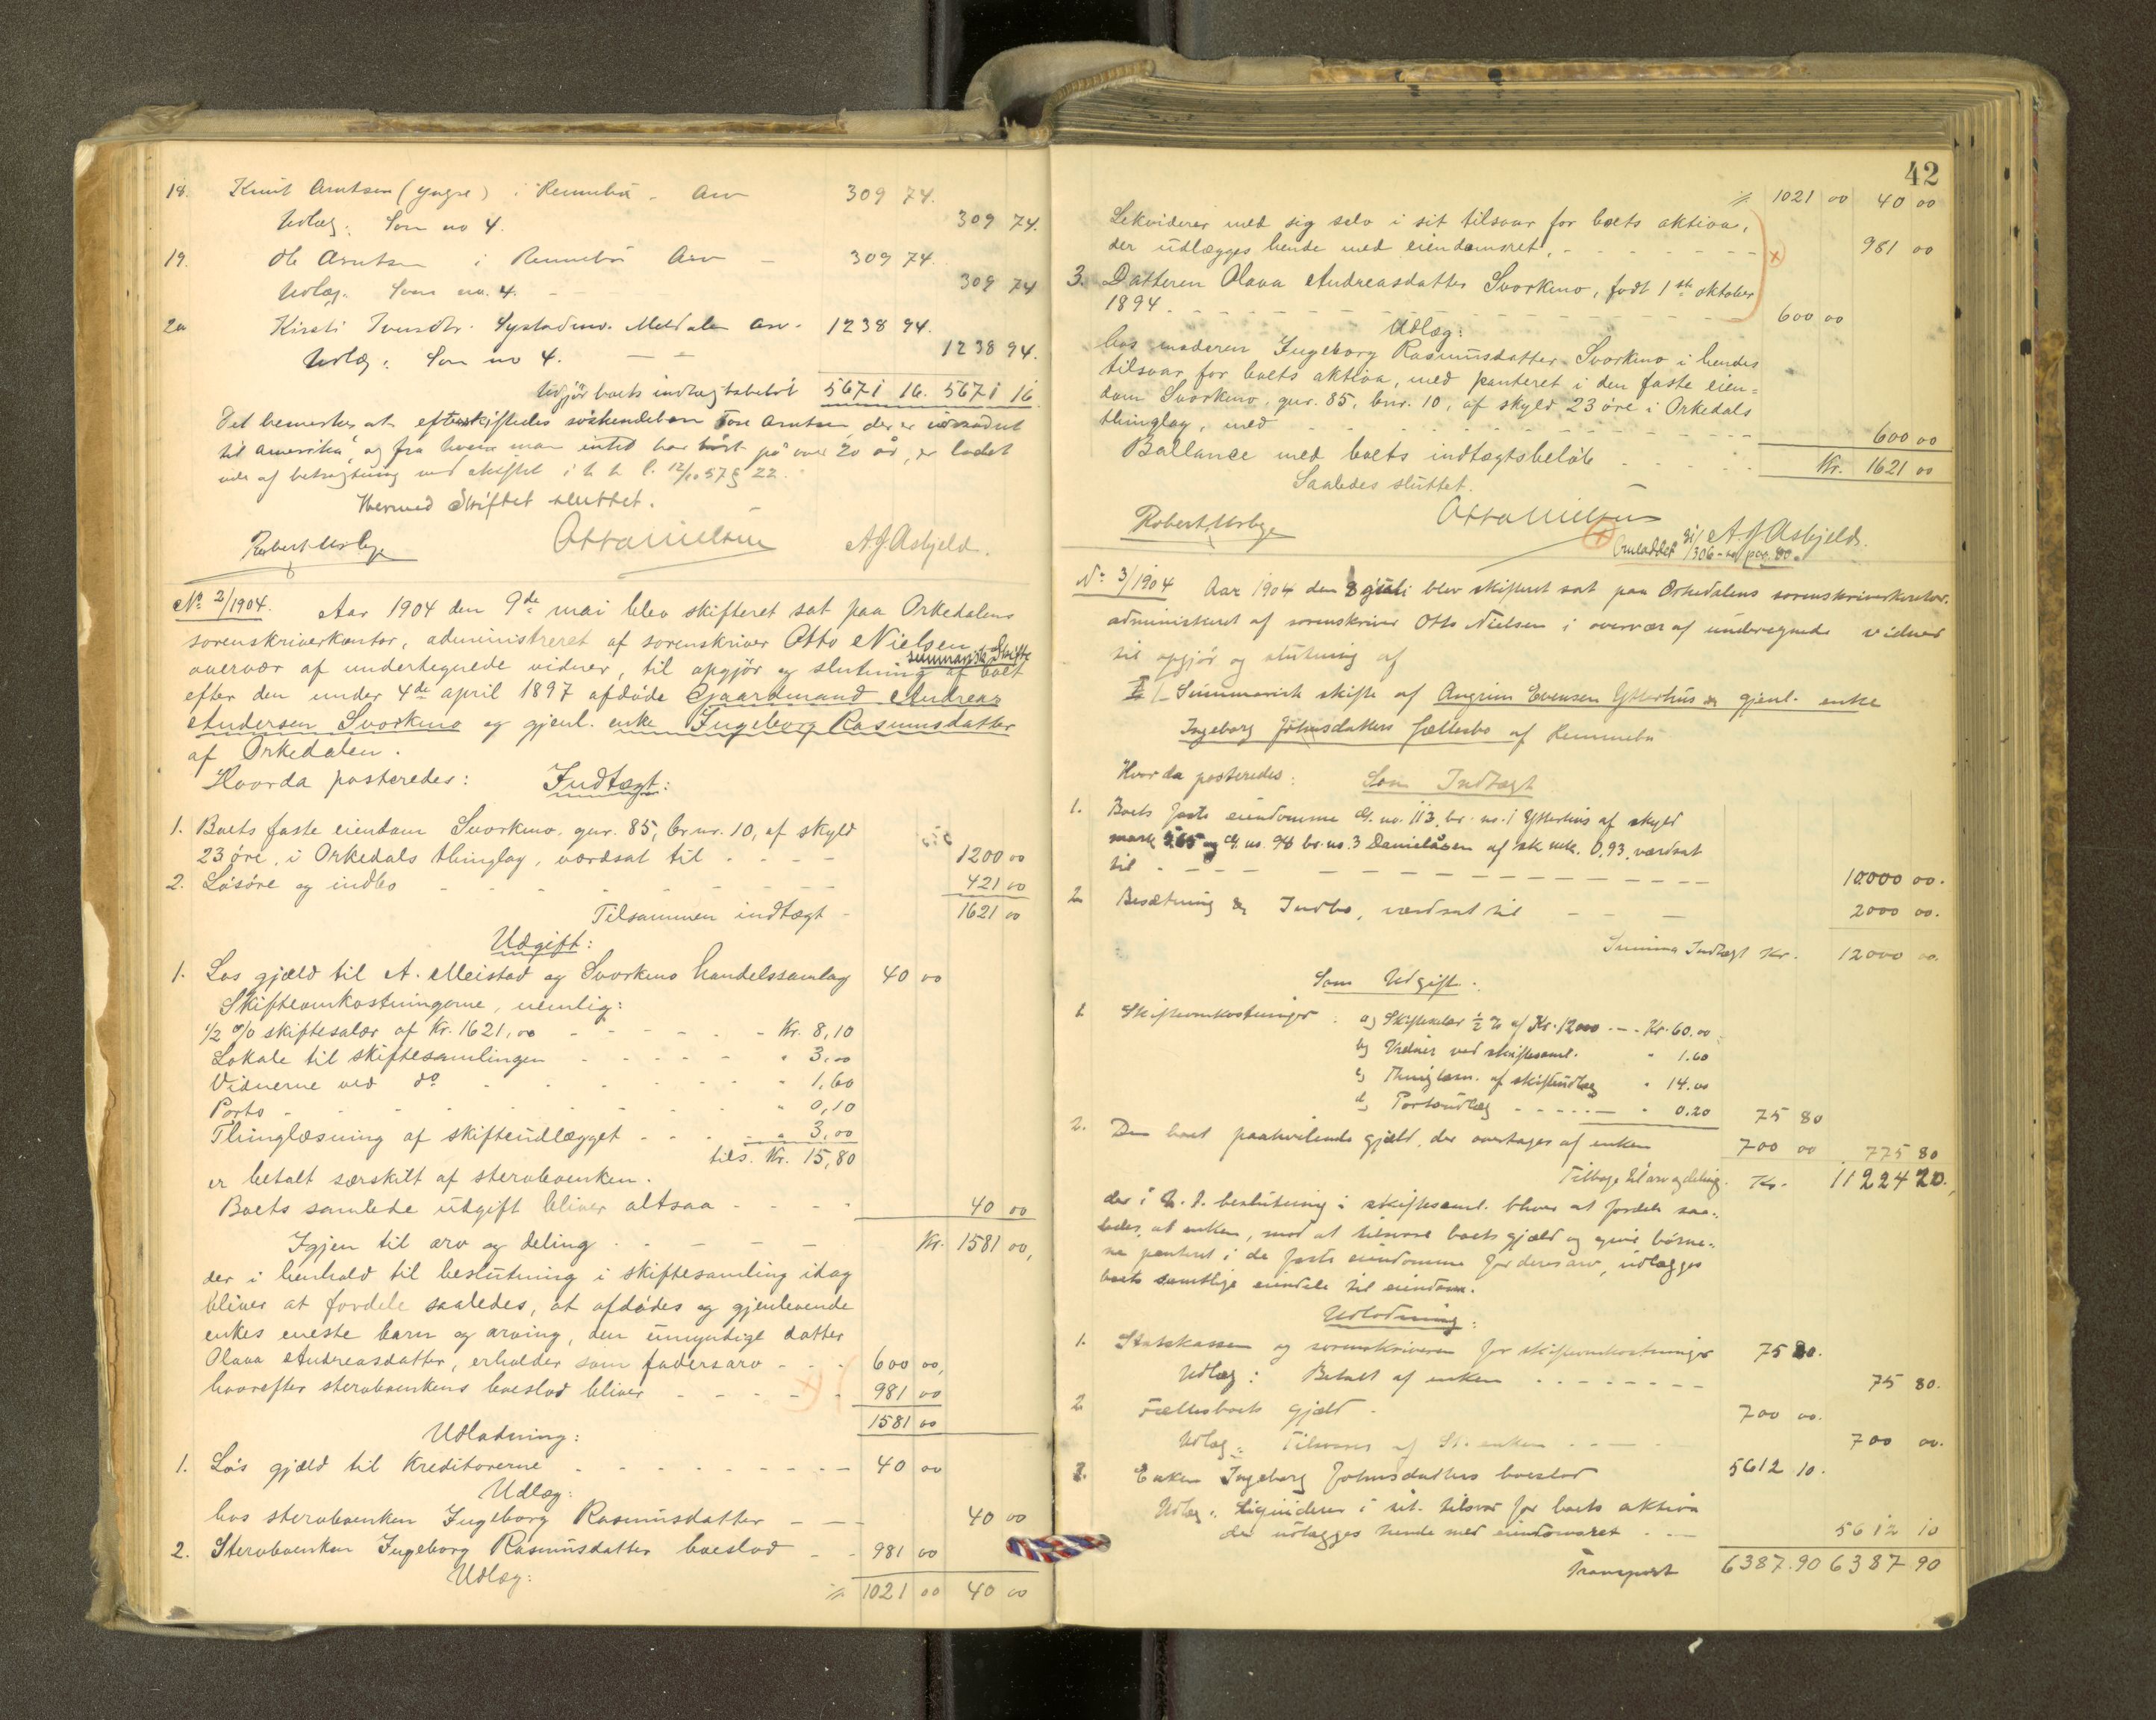 18. Knut Arntsen (yngre) i Rennebu - Arv 309 74.
Udlæg: Som no 4. 309 74.
19. Ole Arntsen i Rennebu Arv - 309 74.
Udlæg: Som no. 4. - 309 74
20 Kirsti Iversdtr. Meldalen Arv. 1238 94.
Udlæg: Som no 4. 1238 94.
Udgjør boets indtægtsbeløb 5671 16. 5671 16
Det bemerkes at efterskiftedes søskendebarn Tore Arntsen, der er udvandret
til Amerika, og fra hvem man intet har hørt på over 20 år, er ladet
ude af betragtning ved skiftet i h. t. l. 12/10 57 § 22.
Hermed Skiftet sluttet.
Robert Usbye Otto Nielsen A J Asbjeld.
No 2/1904. Aar 1904 den 9de mai blev skifteret sat paa Orkedalens
sorenskriverkontor, administreret af sorenskriver Otto Nielsen i
overvær af undertegnede vidner, til opgjør og slutning af summarisk Skifte boet
efter den under 4de april 1897 afdøde Gaardmand Andreas
Andersen Svorkmo og gjenl. enke Ingeborg Rasmusdatter
af Orkedalen.
Hvorda posteredes: Indtægt:
1. Boets faste eiendom Svorkmo, gnr. 85, brnr. 10, af skyld
23 øre, i Orkedals thinglag, værdsat til - - - - 1200 00
2. Løsøre og indbo - - - - - - 421 00
Tilsammen indtægt - 1621 00
Udgift:
1. Løs gjæld til A. Meistad og Svorkmo handelssamlag 40 00
Skifteomkostningerne, nemlig:
1/2 % skiftesalær af Kr. 1621,00 - - - - Kr. 8,10
Lokale til skiftesamlingen - - - - " 3,00
Vidnerne ved do - - - - " 1,60
Porto - - - - - - " 0,10
Thinglæsning af skifteudlægget - - - - " 3,00
tils. Kr. 15,80
er betalt særskilt af stervboenken.
Boets samlede udgift bliver altsaa - - - - 40 00
Igjen til arv og deling - - - - Kr. 1581 00,
der i henhold til beslutning i skiftesamling idag
bliver at fordele saaledes, at afdødes og gjenlevende
enkes eneste barn og arving, den umyndige datter
Olava Andreasdatter, erholder som fadersarv - - - 600 00,
hvorefter stervboenkens boeslod bliver - - - - - 981 00
1581 00
Udlodning:
1. Løs gjæld til kreditorerne - - - - - - - 40 00
Udlæg:
hos stervboenken Ingeborg Rasmusdatter - - - 40 00
2. Stervboenken Ingeborg Rasmusdatter boeslod - - 981 00
Udlæg:
% 1021 00 40 00
42
% 1021 00 40 00
Lekviderer med sig selv i sit tilsvar for boets aktiva,
der udlægges hende med eiendomsret, - - - - - - - 981 00
3. Datteren Olava Andreasdatter Svorkmo, født 1ste oktober
1894. - - - - - - - - - - - - 600 00
Udlæg:
hos moderen Ingeborg Rasmusdatter Svorkmo i hendes
tilsvar for boets aktiva, med panteret i den faste eien=
dom Svorkmo, gnr. 85, bnr. 10, af skyld 23 øre i Orkedals
thinglag, med - - - - - - - - - - 600 00
Ballance med boets indtægtsbeløb - - - - Kr. 1621 00
Saaledes sluttet.
Robert Usbye Otto Nielsen A. J Asbjeld.
Omladdet 1306 - pag. 80.
No 3/1904 Aar 1904 den 8 juli blev skifteret sat paa Orkedalens sorenskriverkontor,
administreret af sorenskriver Otto Nielsen i overvær af undertegnede vidner
til opgjør og slutning af
I/ Summarisk skifte af Angrim Evensen Ytterhus & gjenl. enke
Ingeborg Johnsdatters fællesbo af Rennebu
Hvorda posteredes: Som Indtægt
1. Boets faste eiendomme G. no. 113, br. no. 1 Ytterhus af skyld
mark 5.65 og G. no. 98 br. no. 3 Danielåsen af sk mk. 0,93, værdsat
til - - - - - - - - - - - 10000 00.
2 Besætning & Indbo, værdsat til - - - 2000 00.
Summa Indtægt Kr. 12000 00.
Som Udgift.
1. Skifteomkostninger: a) Skiftesalær 1/2 % af Kr. 12000 - - Kr. 60.00
b) Vidner ved skiftesaml. " 1.60
c) Thinglæsn. af skifteudlæg " 14.00
d) Portoudlæg - - - - " 0.20 75 80
2. Den boet paahvilende gjæld, der overtages af enken 700 00 775 80
Tilbage til arv og deling. Kr. 11224 20.
der i h. t. beslutning i skiftesaml. bliver at fordele saa=
ledes, at enken, mod at tilsvare boets gjæld og give børne=
ne panteret i de faste eiendomme for deres arv, udlægges
boets samtlige eiendele til eiendom.
Udlodning:
1. Statskassen og sorenskriveren for skifteomkostninger 75 80.
Udlæg: Betalt af enken - - - - - - - - 75 80.
2 Fællesboets gjæld - 700 00.
Udlæg: Tilsvares af St. enken - - - - 700 00.
3. Enken Ingeborg Johnsdatters boeslod 5612 10.
Udlæg: Liquiderer i sit tilsvar for boets aktiva
der udlægges hende med eiendomsret - - - 5612 10
Transport 6387.90 6387 90